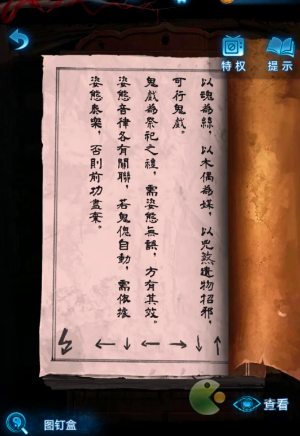 特权
提示
以魂為絲，以木偶為媒，以兇煞遺物招邪，
可行鬼戲。
鬼戲為祭祀之禮，需姿態無誤，方有其效。
姿態音律各有關聯，若鬼傀自動，需依據
姿態奏樂，否則前功盡棄。
←↓←→→↓↑
查看
图钉盒